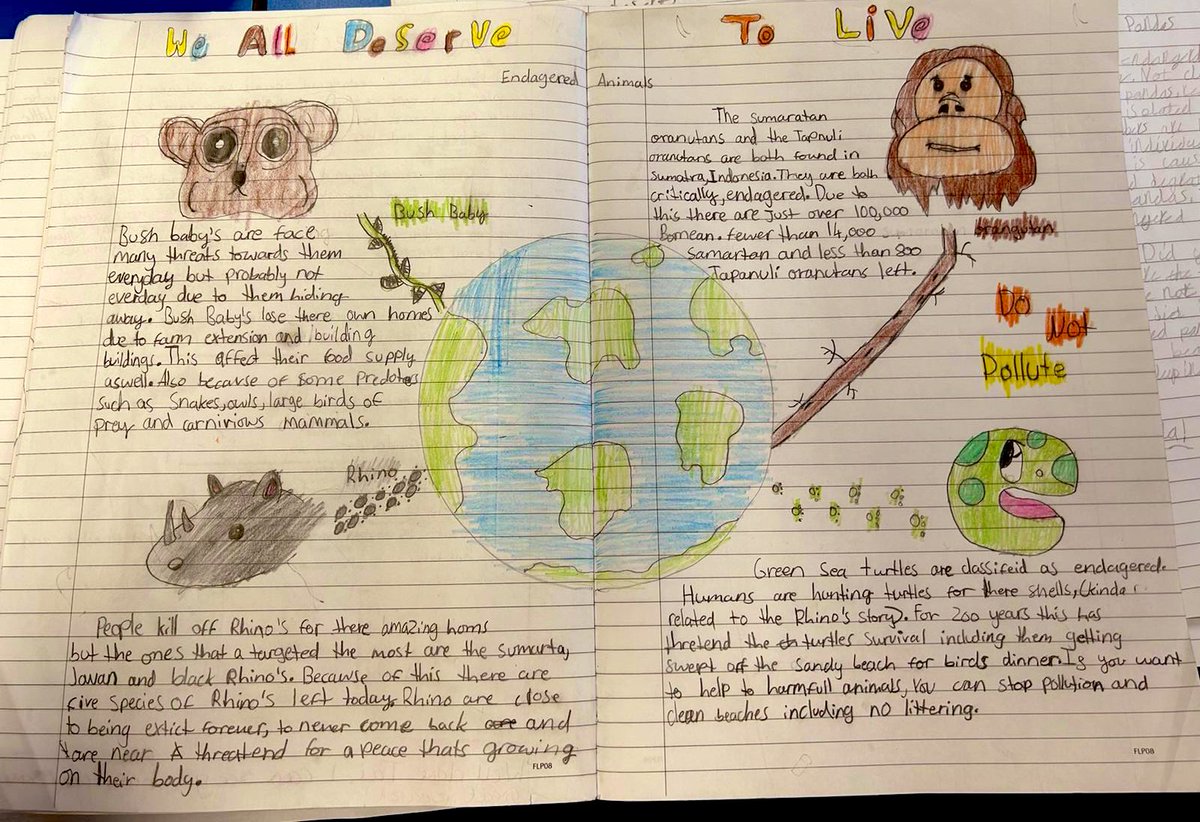 We All Deserve To Live
Endagered Animals
Bush Baby
Bush baby's are face
many threats towards them
everyday but probably not
everday due to them hiding
away. Bush Baby's lose there own homes
due to farm extension and building
buildings. This affect their food supply
aswell. Also because of some predators
such as snakes, owls, large birds of
prey and carnivious mammals.
Rhino
People kill off Rhino's for there amazing horns
but the ones that a targeted the most are the sumarta,
Javan and black Rhino's. Because of this there are
five species of Rhino's left today. Rhino are close
to being extict forever, to never come back and
are near A threatend for a peace thats growing
on their body.
FLP08
The sumaratan
oranutans and the Tapnuli
oranutans are both found in
sumatra, Indonesia. They are both
critically, endagered. Due to
this there are just over 100,000
Bornean. fewer than 14,000
Samartan and less than 800
Tapanuli oranutans left.
orangutan
Do Not
Pollute
Green Sea turtles are classifeid as endagered.
Humans are hunting turtles for there shells, (kinda
related to the Rhino's story). For 200 years this has
thretend the turtles survival including them getting
swept off the sandy beach for birds dinner. If you want
to help to harmfull animals, You can stop pollution and
clean beaches including no littering.
FLP08
Pandas